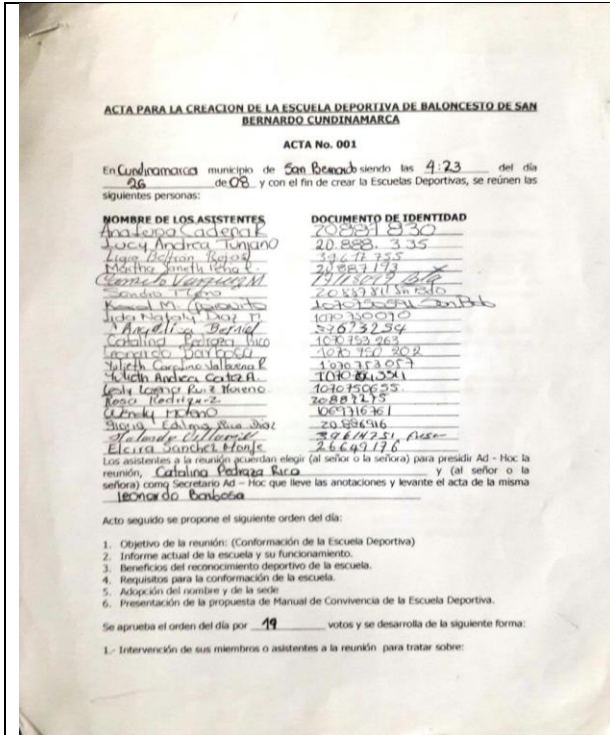 ACTA PARA LA CREACION DE LA ESCUELA DEPORTIVA DE BALONCESTO DE SAN
BERNARDO CUNDINAMARCA
ACTA No. 001
En Cundinamarca municipio de San Bernardo siendo las 4:23 del día
26 de 08 y con el fin de crear la Escuelas Deportivas, se reúnen las
siguientes personas:
NOMBRE DE LOS ASISTENTES DOCUMENTO DE IDENTIDAD
Ana Cadena R 20881830
Lucy Andrea Tunjano 20.888.335
Ligia Beltran Rojas
Martha Janeth Peña R. 20887193
Vasquez M
Sandra
Lida Nataly Diaz 1070750070
Angelica Bernal
Catalina Pedraza Rico 1070753263
Leonardo Barbosa 1070750202
Yulieth Carolina Valbuena R 1070753057
Yulieth Andrea
Lesly Lorena Ruiz Moreno 1070750655
Rosa Rodriguez 20887275
Wendy Moreno 1069716761
Gloria Edilma Rico Diaz 20.886916
Yolanda Villamil 39614751
Elcira Sanchez Monje 26649176
Los asistentes a la reunión acuerdan elegir (al señor o la señora) para presidir Ad - Hoc la
reunión, Catalina Pedraza Rico y (al señor o la
señora) como Secretario Ad – Hoc que lleve las anotaciones y levante el acta de la misma
leonardo Barbosa
Acto seguido se propone el siguiente orden del día:
1. Objetivo de la reunión: (Conformación de la Escuela Deportiva)
2. Informe actual de la escuela y su funcionamiento.
3. Beneficios del reconocimiento deportivo de la escuela.
4. Requisitos para la conformación de la escuela.
5. Adopción del nombre y de la sede
6. Presentación de la propuesta de Manual de Convivencia de la Escuela Deportiva.
Se aprueba el orden del día por 19 votos y se desarrolla de la siguiente forma:
1.- Intervención de sus miembros o asistentes a la reunión para tratar sobre: